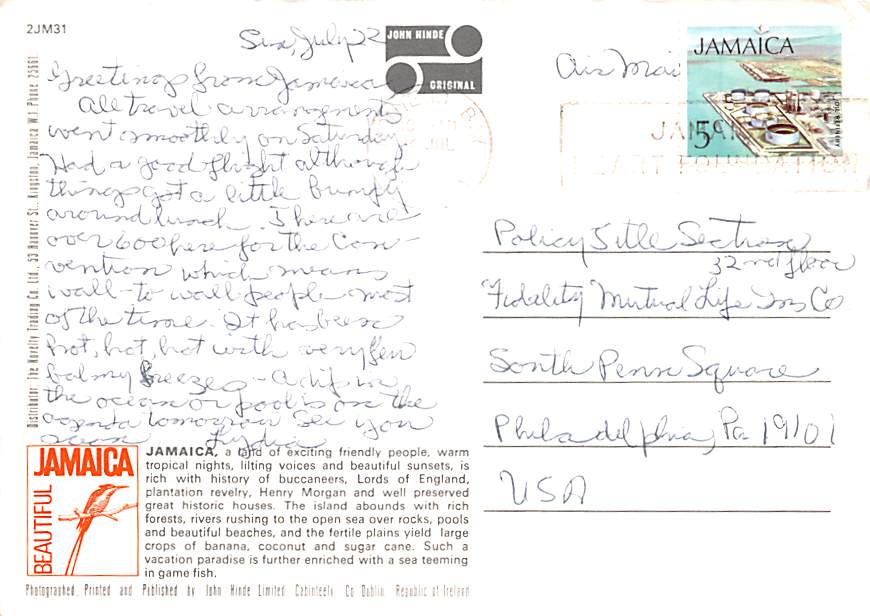 2JM31
Sun, July 22
JOHN HINDE
ORIGINAL
Greetings from Jamaica
All travel arrangements
went smoothly on Saturday.
Had a good flight although
things got a little bumpy
around lunch. There are
over 600 here for the Con-
vention which means
wall-to wall people most
of the time. It has been
hot, hot, hot with very few
balmy breezes - a dip in
the ocean or pool is on the
agenda tomorrow See you
soon Lydia
Air Mail
JAMAICA
5c
OIL REFINERY
JAMAICA
FOUNDATION
Policy Title Section
32nd floor
Fidelity Mutual Life Ins Co
South Penn Square
Philadelphia, Pa 19101
USA
Distributor: The Novelty Trading Co. Ltd., 53 Hanover St., Kingston, Jamaica W.I. Phone 25661
BEAUTIFUL JAMAICA
JAMAICA, a land of exciting friendly people, warm
tropical nights, lilting voices and beautiful sunsets, is
rich with history of buccaneers, Lords of England,
plantation revelry, Henry Morgan and well preserved
great historic houses. The island abounds with rich
forests, rivers rushing to the open sea over rocks, pools
and beautiful beaches, and the fertile plains yield large
crops of banana, coconut and sugar cane. Such a
vacation paradise is further enriched with a sea teeming
in game fish.
Photographed, Printed and Published by John Hinde Limited Cabinteely, Co Dublin, Republic of Ireland